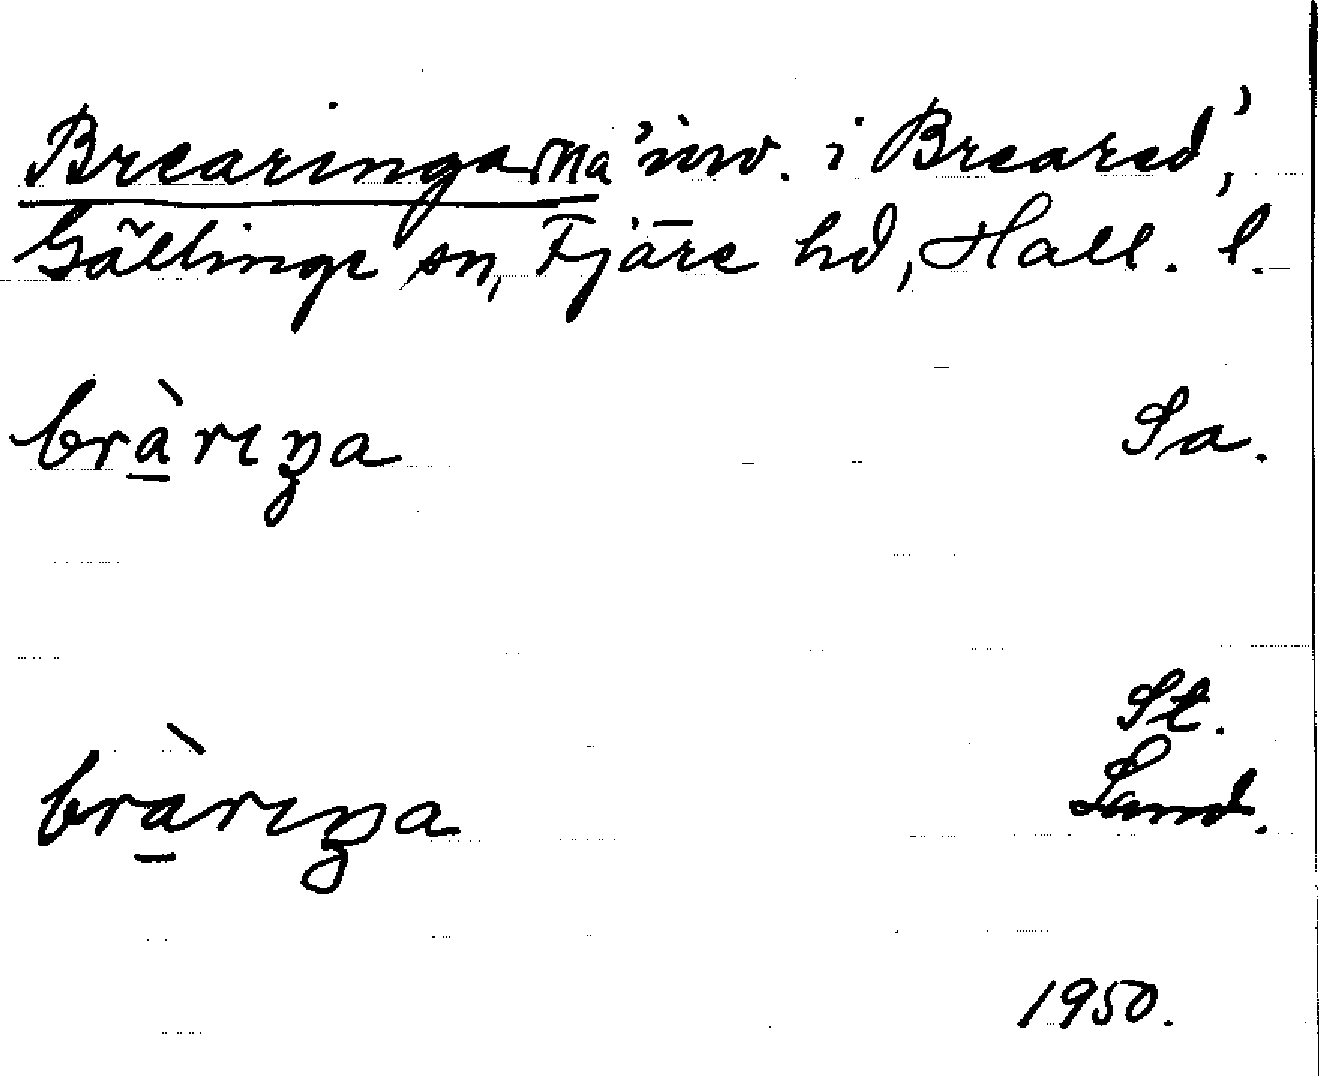 Brearingarna 'inv. i Breared',
Gällinge sn, Fjäre hd, Hall. l.
brà̲rıŋa Sa.
St.
brà̲rıŋa Land.
1950.